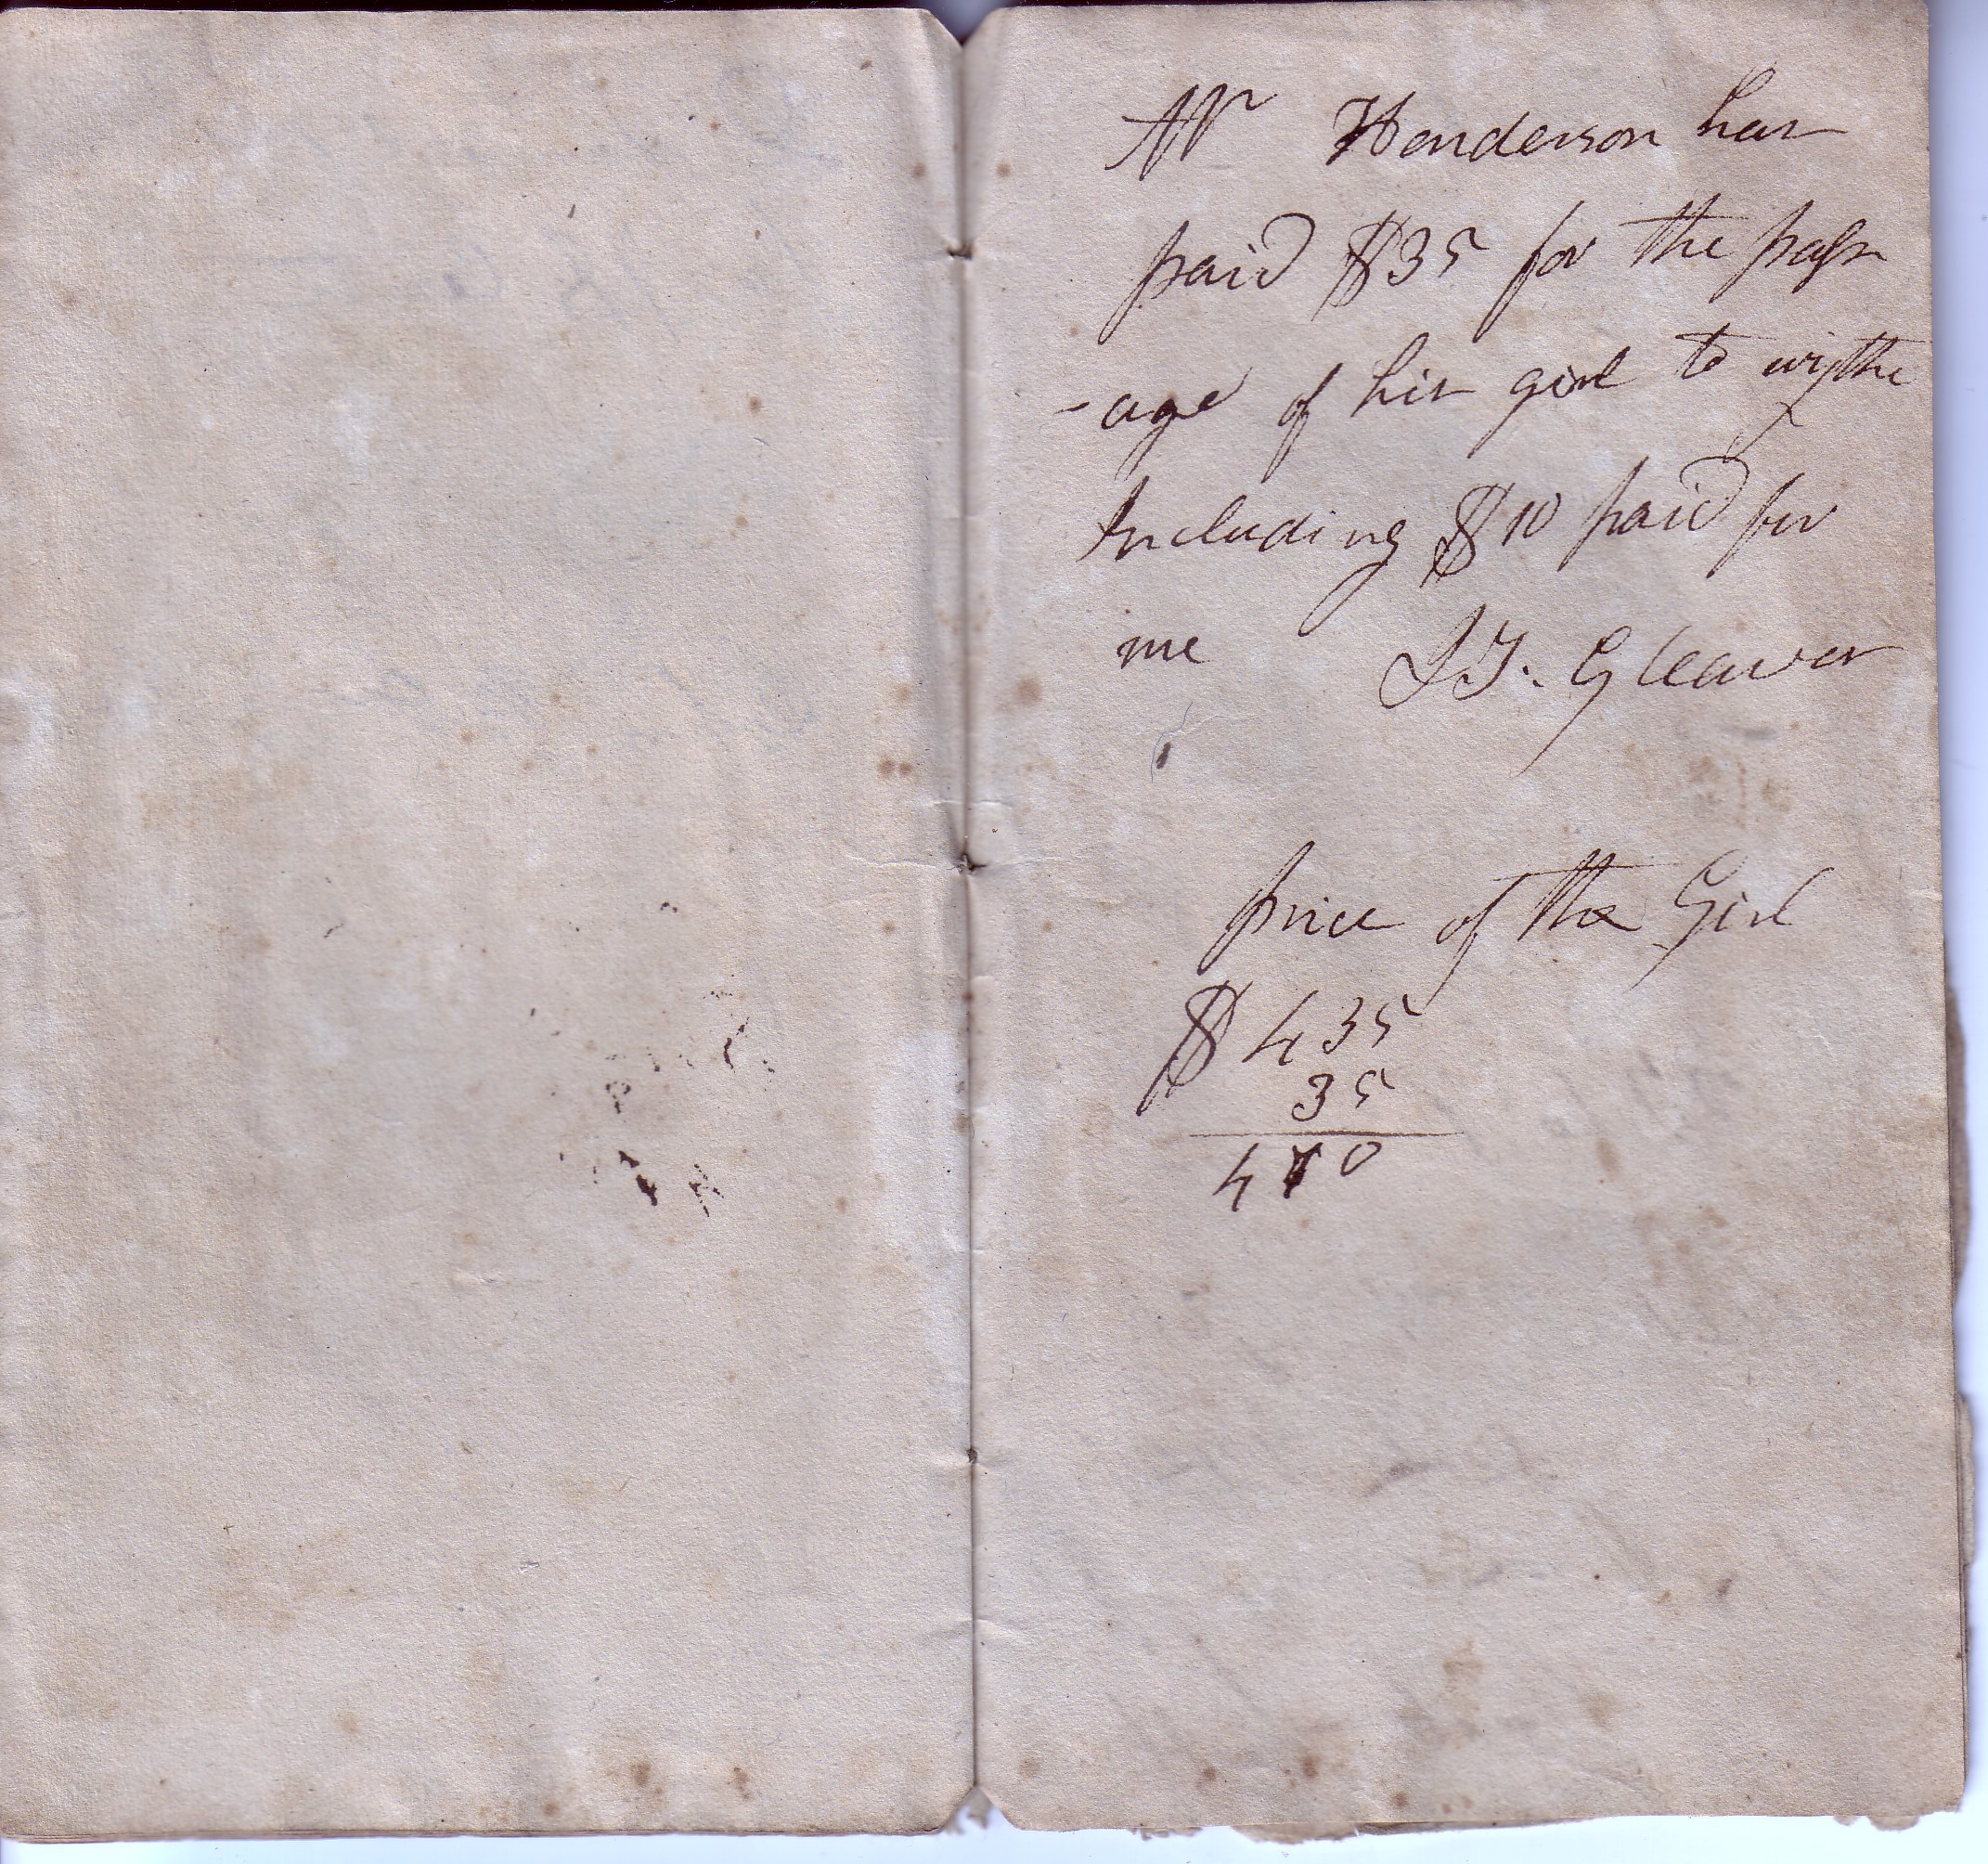 Mr Henderson has
paid $35 for the pass
-age of his girl to wythe
Including $10 paid for
me J. T. Gleaves
price of the Girl
$ 435
35
470